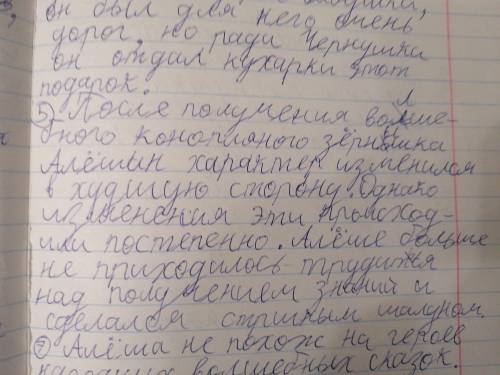 он был для него очень
дорог, но ради Чернушки
он отдал кухарки этот
подарок.
5) После получения волше-
бного конопляного зёрнышка
Алёшин характер изменился
в худшую сторону. Однако
изменения эти происход-
или постепенно. Алёше больше
не приходилось трудится
над получением знаний и
сделался стршным шалуном.
7) Алёша не похож на героев
народных волшебных сказок.